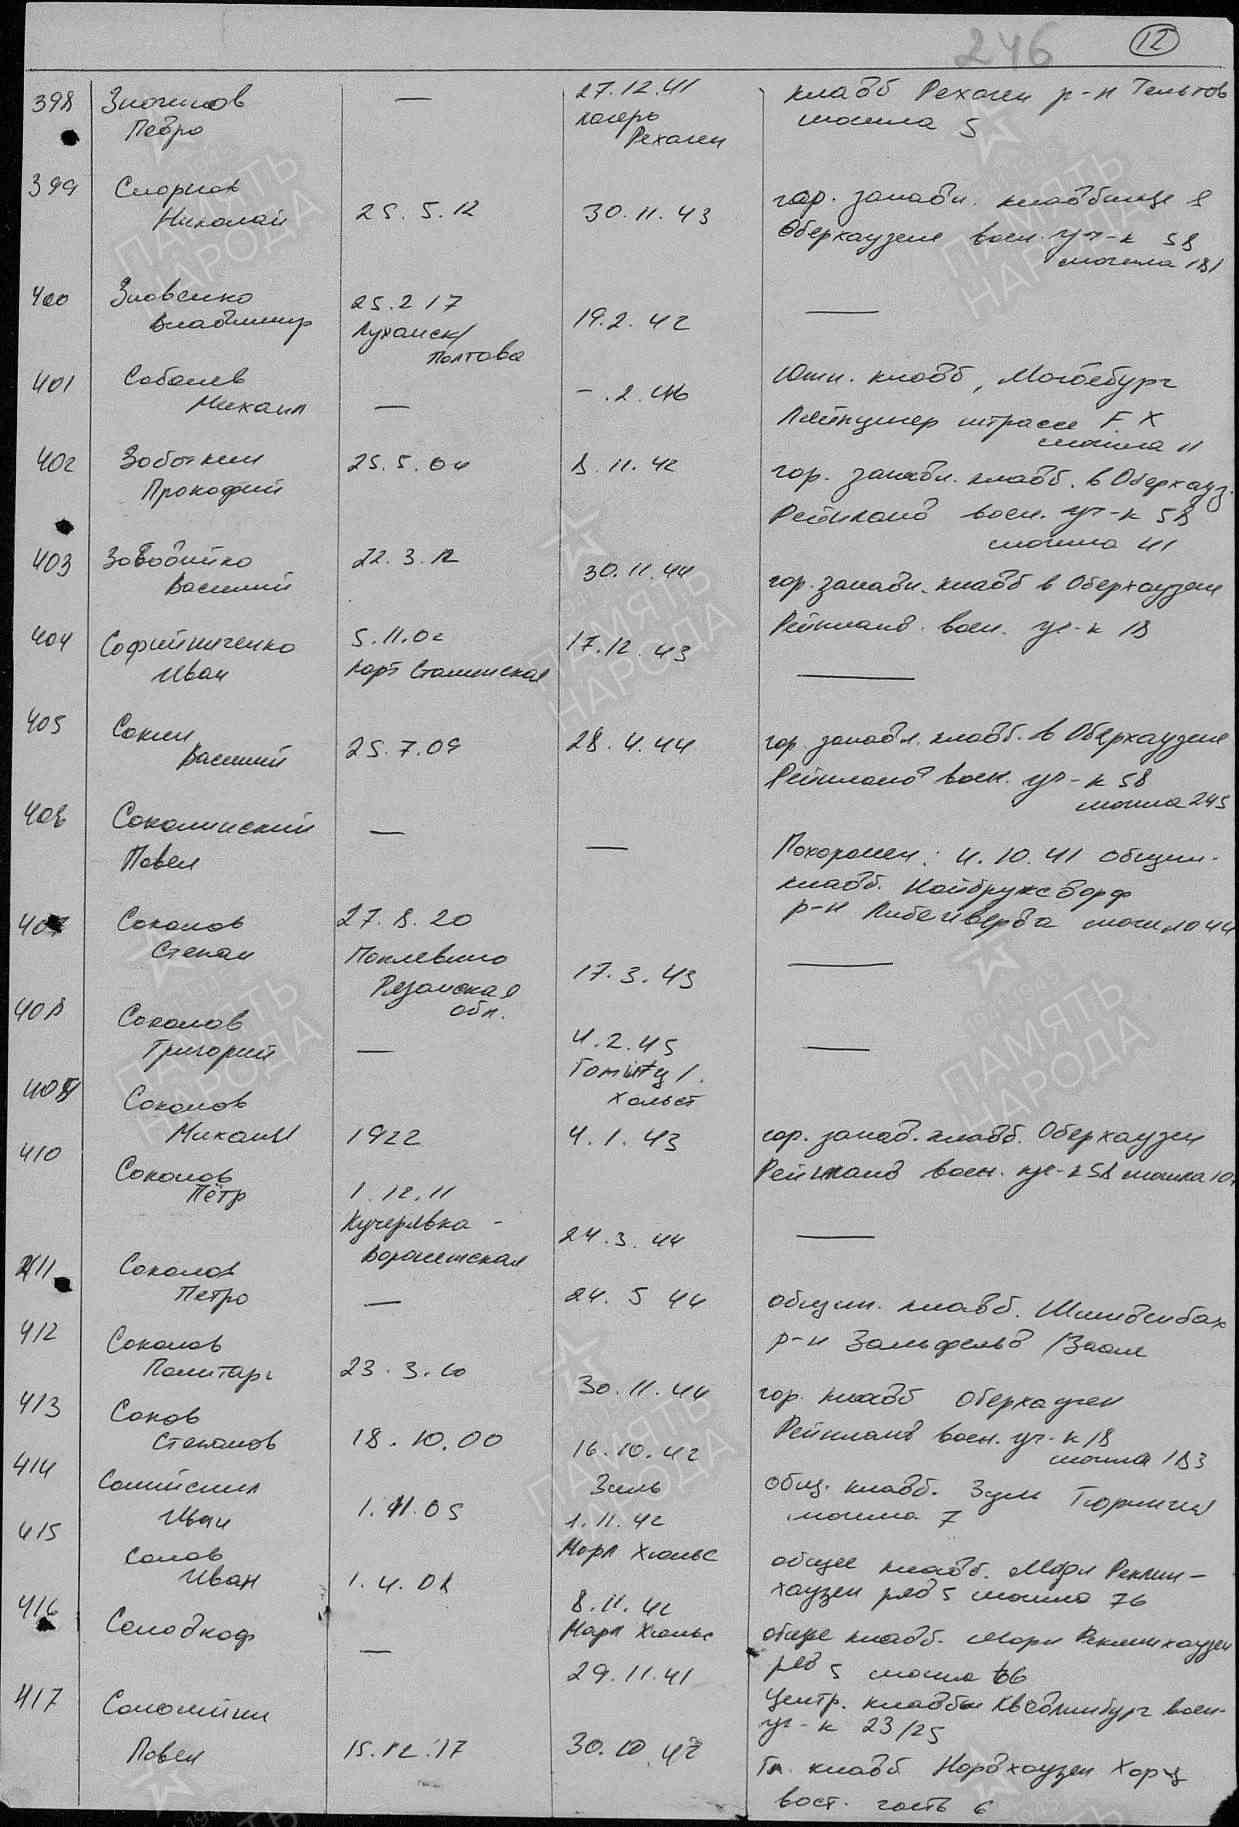 246
12
398 Злочинов — 27.12.41 кладб Рехаген р-н Тельтов
Педро лагерь могила 5
Рехаген
399 Смирнов гор. западн. кладбище в
Николай 25.5.12 30.11.43 Оберхаузене воен. уч-к 58
могила 181
400 Зловенко 25.2 17
Владимир Луханск/ 19.2.42 —
Полтава
401 Соболев Южн. кладб, Магдебург
Михаил — – .2.46 Лейпцигер штрассе F. X
могила 11
402 Зоболкин 25.5.04 8.11.42 гор. западн. кладб. в Оберхауз.
Прокофий Рейнланд воен. уч-к 58
могила 41
403 22.3.12 30.11.44 гор. западн. кладб в Оберхаузене
Василий Рейнланд. воен. уч-к 18
404 Софийниченко 5.11.02 17.12.43
Иван Сталинская —
405 Сокин 25.7.09 28.4.44 гор. западн. кладб. в Оберхаузене
Василий Рейнланд воен. уч-к 58
могила 245
406 Соколинский — —
Павел Похоронен: 4.10.41 общин.
кладб.
р-н Либенверда могила 44
407 Соколов 27.8.20
Степан Милославская 17.3.43 —
Рязанская
обл.
408 Соколов 4.2.45
Григорий — —
409 Соколов
Михаил 1922 4.1.43 гор. запад. кладб. Оберхаузен
Рейнланд воен. уч-к 58 могила
410 Соколов
Пётр 1.12.11
Кучерявка - 24.3.44 —
Воронежская
411 Соколов
Петро — 24. 5 44 общин. кладб.
р-н Зальфельд /Заале
412 Соколов
23.3.10 30.11.44 гор. кладб Оберхаузен
Рейнланд воен. уч-к 18
могила 183
413 Соков
Степанов 18.10.00 16.10.42 общ. кладб. Зуль Тюрингия
Зуль могила 7
414
Иван 1.11.05 1.11.42
Марл Хюльс общее кладб. Марл Реклин-
хаузен ряд 5 могила 76
415 Солов
Иван 1.4.08 8.11.42
Марл Хюльс общее кладб. Марл Реклинхаузен
ряд 5 могила 66
416 Солодкоф — 29.11.41 Центр. кладбы Кведлинбург воен.
уч-к 23/25
417 Соломийн
Павел 15.12.17 30.10.42 Гл. кладб Нордхаузен Харц
вост. часть 6
ПАМЯТЬ
НАРОДА